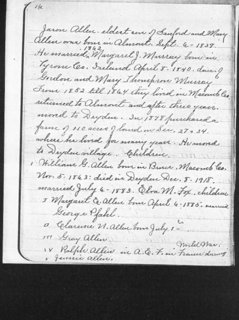 16
Jason Allen eldest son of Sanford and Mary
Allen was born in Almont Sept. 6 - 1837.
1862
He married Margaret J. Murray born in
Tyrone Co. Ireland April 8. 1840. daur of
Gordon and Mary Thompson Murray
From 1852 till 1864 they lived in Macomb Co.
returned to Almont and after three years
moved to Dryden. In 1878 purchased a
farm of 110 acres of land in Sec. 27 + 34.
where he lived for many years. He moved
to Dryden village. Children
1 William G. Allen born in Bruce, Macomb Co.
Nov. 5. 1863. died in Dryden Dec. 8. 1915.
married July 4 - 1883. M. Fox. children
Margaret C. Allen born April 6 - 1885. married
George Pfahl.
Clarence N. Allen born July 1 -
Gray Allen.
World War.
iv Ralph Allen in A.E.F. in France
Allen